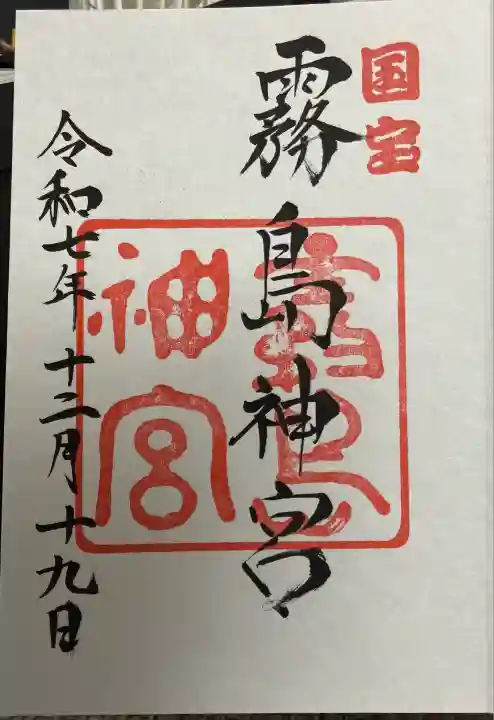 国宝
霧島神宮
霧島
神宮
令和七年十二月十九日